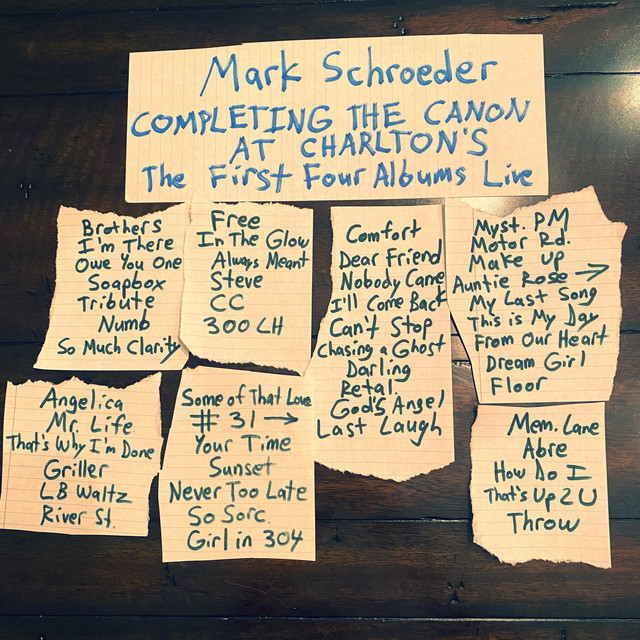 Mark Schroeder
COMPLETING THE CANON
AT CHARLTON'S
The First Four Albums Live
Brothers
I'm There
Owe You One
Soapbox
Tribute
Numb
So Much Clarity
Free
In The Glow
Always Meant
Steve
CC
300 LH
Comfort
Dear Friend
Nobody Came
I'll Come Back
Can't Stop
Chasing a Ghost
Darling
Retal
God's Angel
Last Laugh
Myst. PM
Motor Rd.
Make Up
Auntie Rose →
My Last Song
This is My Day
From Our Heart
Dream Girl
Floor
Angelica
Mr. Life
That's Why I'm Done
Griller
LB Waltz
River St.
Some of That Love
# 31 →
Your Time
Sunset
Never Too Late
So Sorc.
Girl in 304
Mem. Lane
Abre
How Do I
That's Up 2 U
Throw